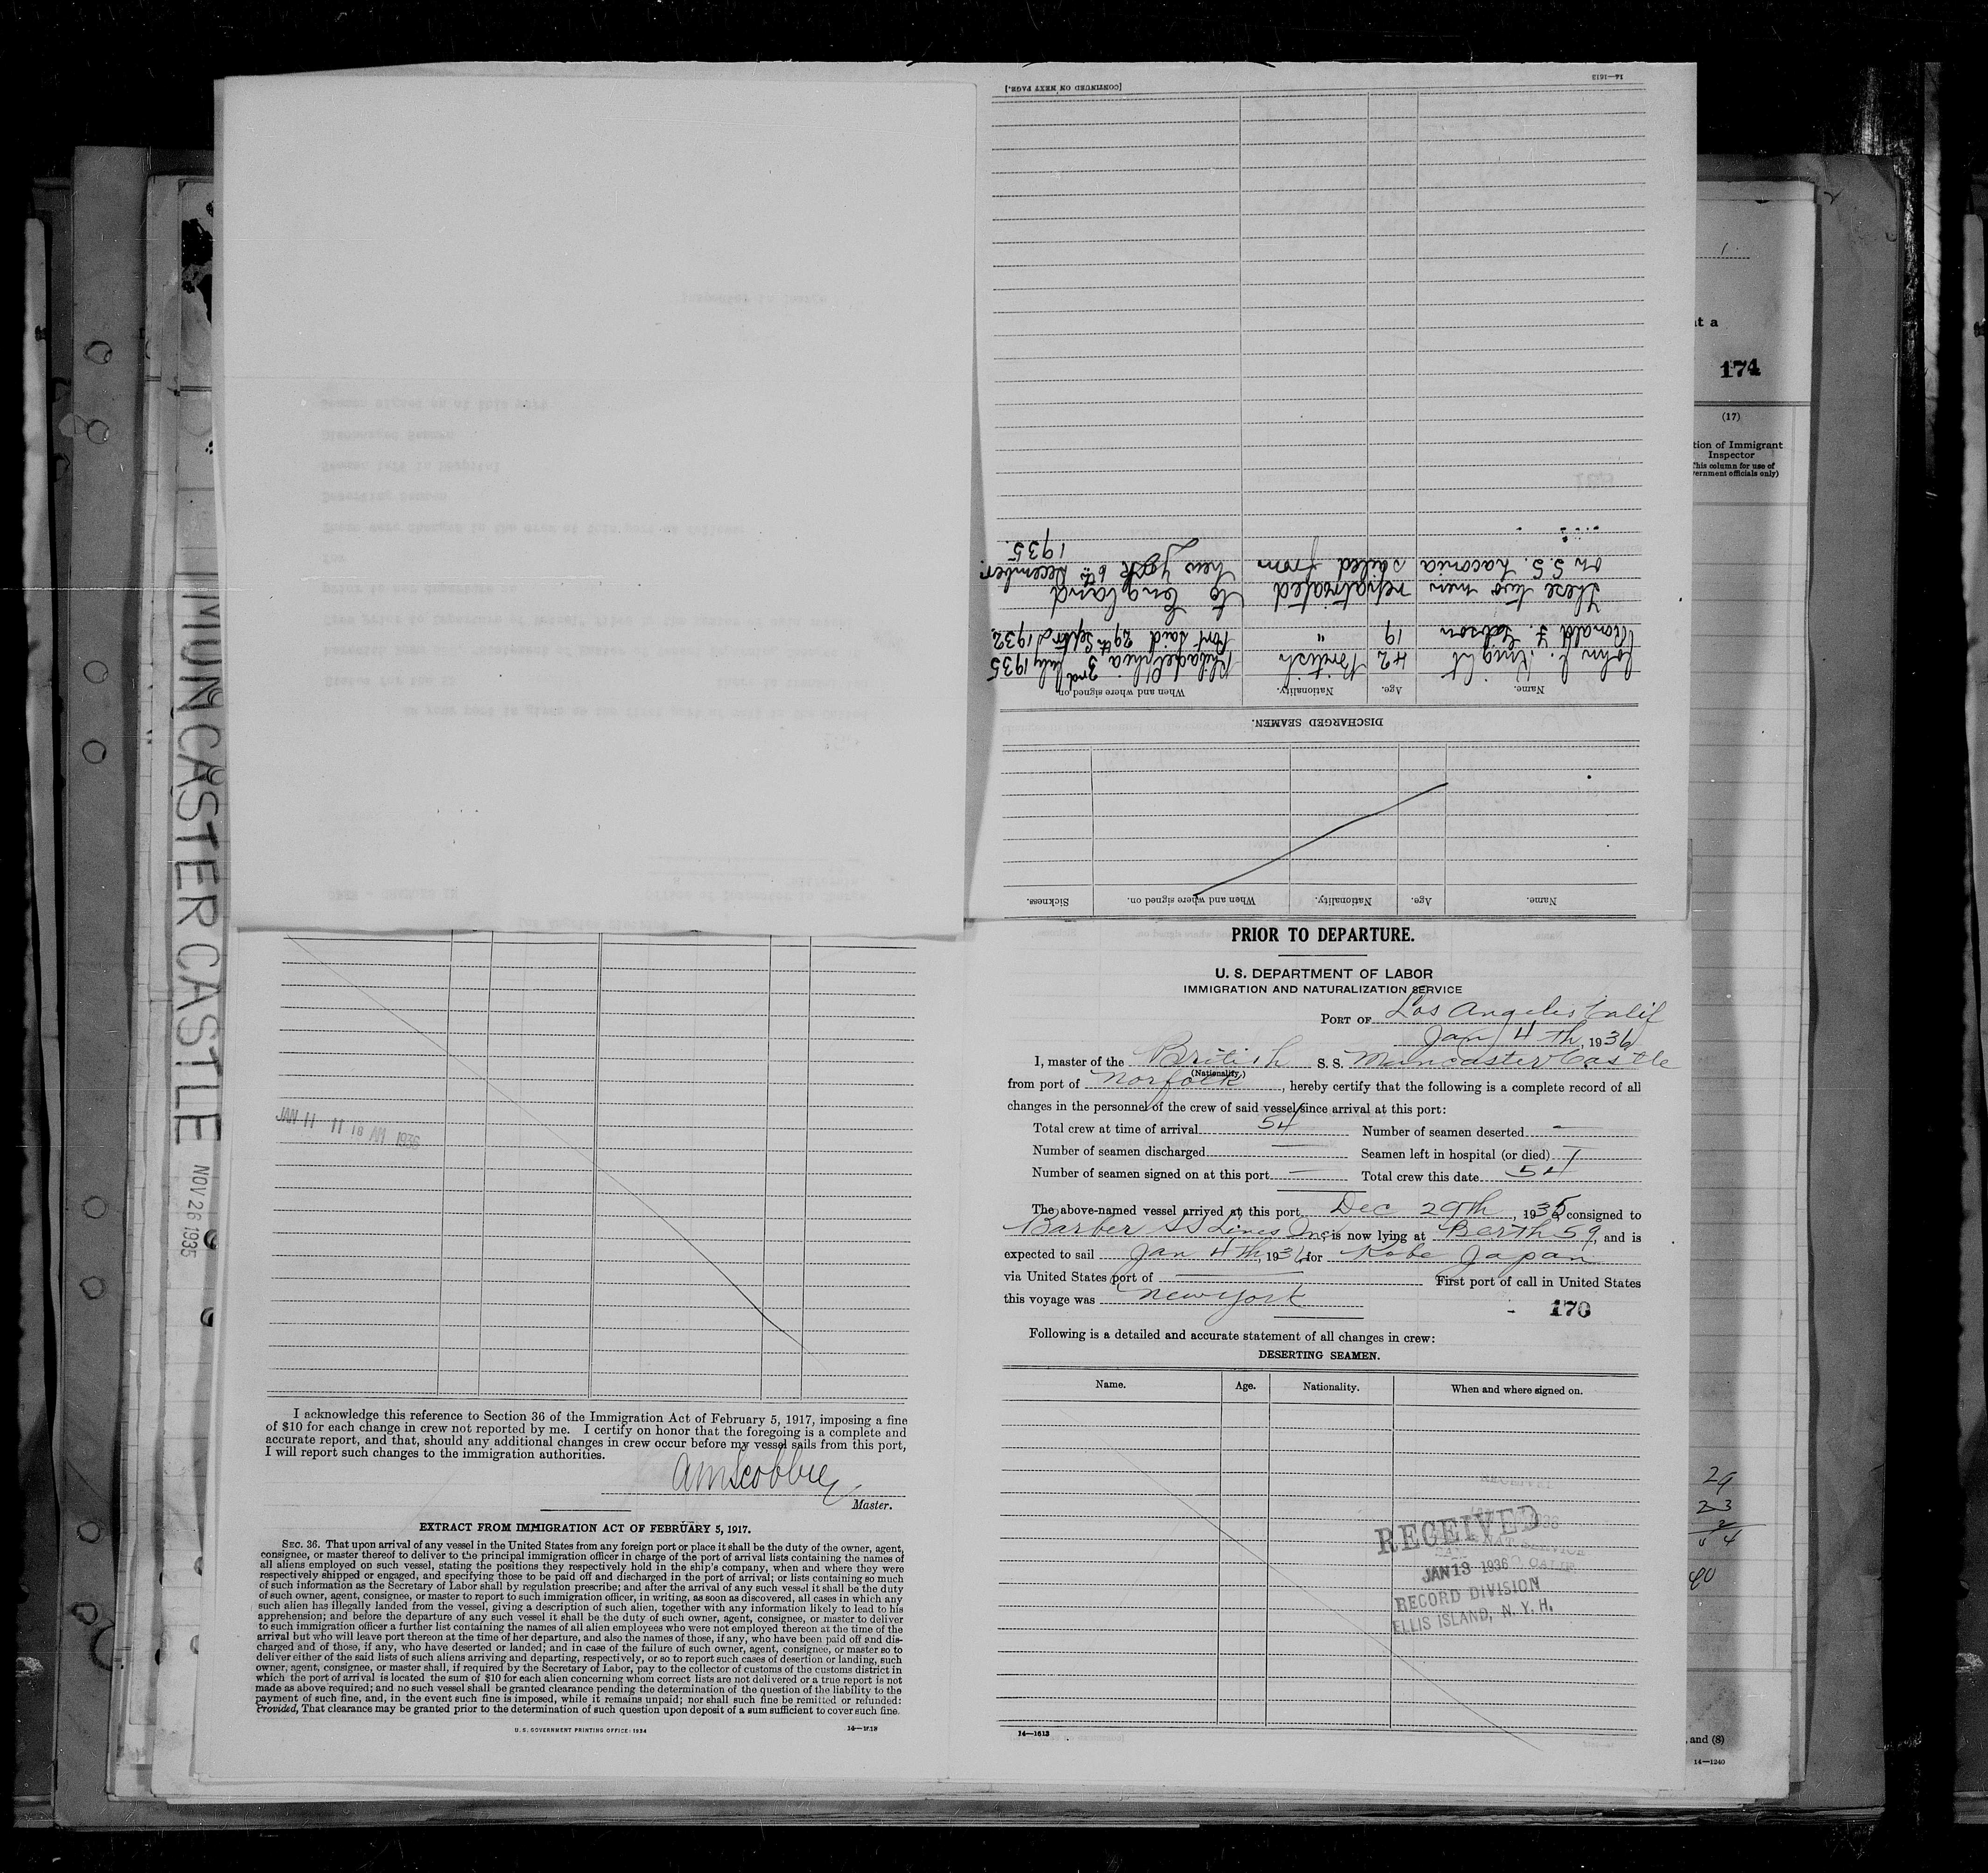 [CONTINUED ON NEXT PAGE.]
14—1613
1935
on S.S. Laconia sailed from New York 6th December
These two men repatriated to England
Ronald F. 19 " Port Said 29th Septbr 1932
John Knight 42 British Philadelphia 3rd July 1935
Name. Age. Nationality. When and where signed on.
DISCHARGED SEAMEN.
Name. Age. Nationality. When and where signed on. Sickness.
PRIOR TO DEPARTURE.
U. S. DEPARTMENT OF LABOR
IMMIGRATION AND NATURALIZATION SERVICE
PORT OF Los Angeles Calif
Jan 4th, 1936
I, master of the British S. S. Muncaster Castle
(Nationality.)
from port of Norfolk, hereby certify that the following is a complete record of all
changes in the personnel of the crew of said vessel since arrival at this port:
Total crew at time of arrival 54 Number of seamen deserted —
Number of seamen discharged — Seamen left in hospital (or died)
Number of seamen signed on at this port — Total crew this date 54
The above-named vessel arrived at this port Dec 29th, 1935, consigned to
Barber SS Lines Inc is now lying at Berth 59, and is
expected to sail Jan 4th, 1936, for Kobe Japan
via United States port of — First port of call in United States
this voyage was New York
- 170
Following is a detailed and accurate statement of all changes in crew:
DESERTING SEAMEN.
Name. Age. Nationality. When and where signed on.
RECEIVED
JAN 13 1936
RECORD DIVISION
ELLIS ISLAND, N. Y. H.
14—1613
MUNCASTER CASTLE
NOV 26 1935
JAN 11 11 16 AM 1936
I acknowledge this reference to Section 36 of the Immigration Act of February 5, 1917, imposing a fine
of $10 for each change in crew not reported by me. I certify on honor that the foregoing is a complete and
accurate report, and that, should any additional changes in crew occur before my vessel sails from this port,
I will report such changes to the immigration authorities.
AM Scobbie
Master.
EXTRACT FROM IMMIGRATION ACT OF FEBRUARY 5, 1917.
SEC. 36. That upon arrival of any vessel in the United States from any foreign port or place it shall be the duty of the owner, agent,
consignee, or master thereof to deliver to the principal immigration officer in charge of the port of arrival lists containing the names of
all aliens employed on such vessel, stating the positions they respectively hold in the ship's company, when and where they were
respectively shipped or engaged, and specifying those to be paid off and discharged in the port of arrival; or lists containing so much
of such information as the Secretary of Labor shall by regulation prescribe; and after the arrival of any such vessel it shall be the duty
of such owner, agent, consignee, or master to report to such immigration officer, in writing, as soon as discovered, all cases in which any
such alien has illegally landed from the vessel, giving a description of such alien, together with any information likely to lead to his
apprehension; and before the departure of any such vessel it shall be the duty of such owner, agent, consignee, or master to deliver
to such immigration officer a further list containing the names of all alien employees who were not employed thereon at the time of the
arrival but who will leave port thereon at the time of her departure, and also the names of those, if any, who have been paid off and dis-
charged and of those, if any, who have deserted or landed; and in case of the failure of such owner, agent, consignee, or master so to
deliver either of the said lists of such aliens arriving and departing, respectively, or so to report such cases of desertion or landing, such
owner, agent, consignee, or master shall, if required by the Secretary of Labor, pay to the collector of customs of the customs district in
which the port of arrival is located the sum of $10 for each alien concerning whom correct lists are not delivered or a true report is not
made as above required; and no such vessel shall be granted clearance pending the determination of the question of the liability to the
payment of such fine, and, in the event such fine is imposed, while it remains unpaid; nor shall such fine be remitted or refunded:
Provided, That clearance may be granted prior to the determination of such question upon deposit of a sum sufficient to cover such fine.
U. S. GOVERNMENT PRINTING OFFICE: 1934
14—1613
1
at a
174
(17)
tion of Immigrant
Inspector
This column for use of
vernment officials only)
29
23
2
54
40
, and (8)
14—1240